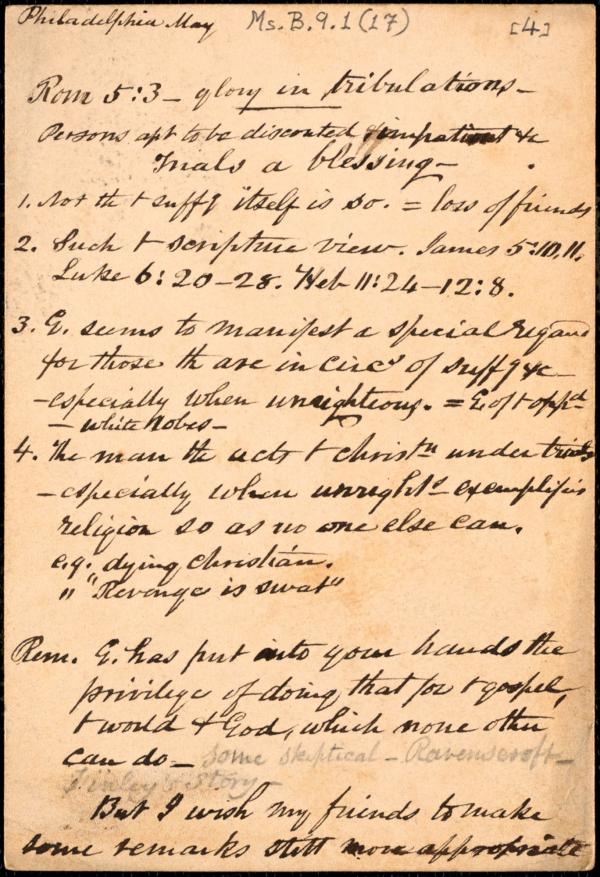 Philadelphia May Ms. B. 9. 1 (17) [4]
Rom 5:3 – glory in tribulations –
Persons apt to be disconted & impatient &c
Trials a blessing –
1. Not th t suffg itself is so. = loss of friends
2. Such t scripture view. James 5:10,11.
Luke 6:20–28. Heb 11:24–12:8.
3. G. seems to manifest a special regard
for those th are in circs of suffg &c –
– especially when unrighteous. = G. of t oppd –
– white robes –
4. The man th acts t christn under trials
– especially when unrights – exemplifies
religion so as no one else can.
e.g. dying christian.
" "Revenge is sweet"
Rem. G. has put into your hands the
privilege of doing that for t gospel,
t world & God, which none other
can do – some skeptical – Ravenscroft –
Finley's Story –
But I wish my friends to make
some remarks still more appropriate